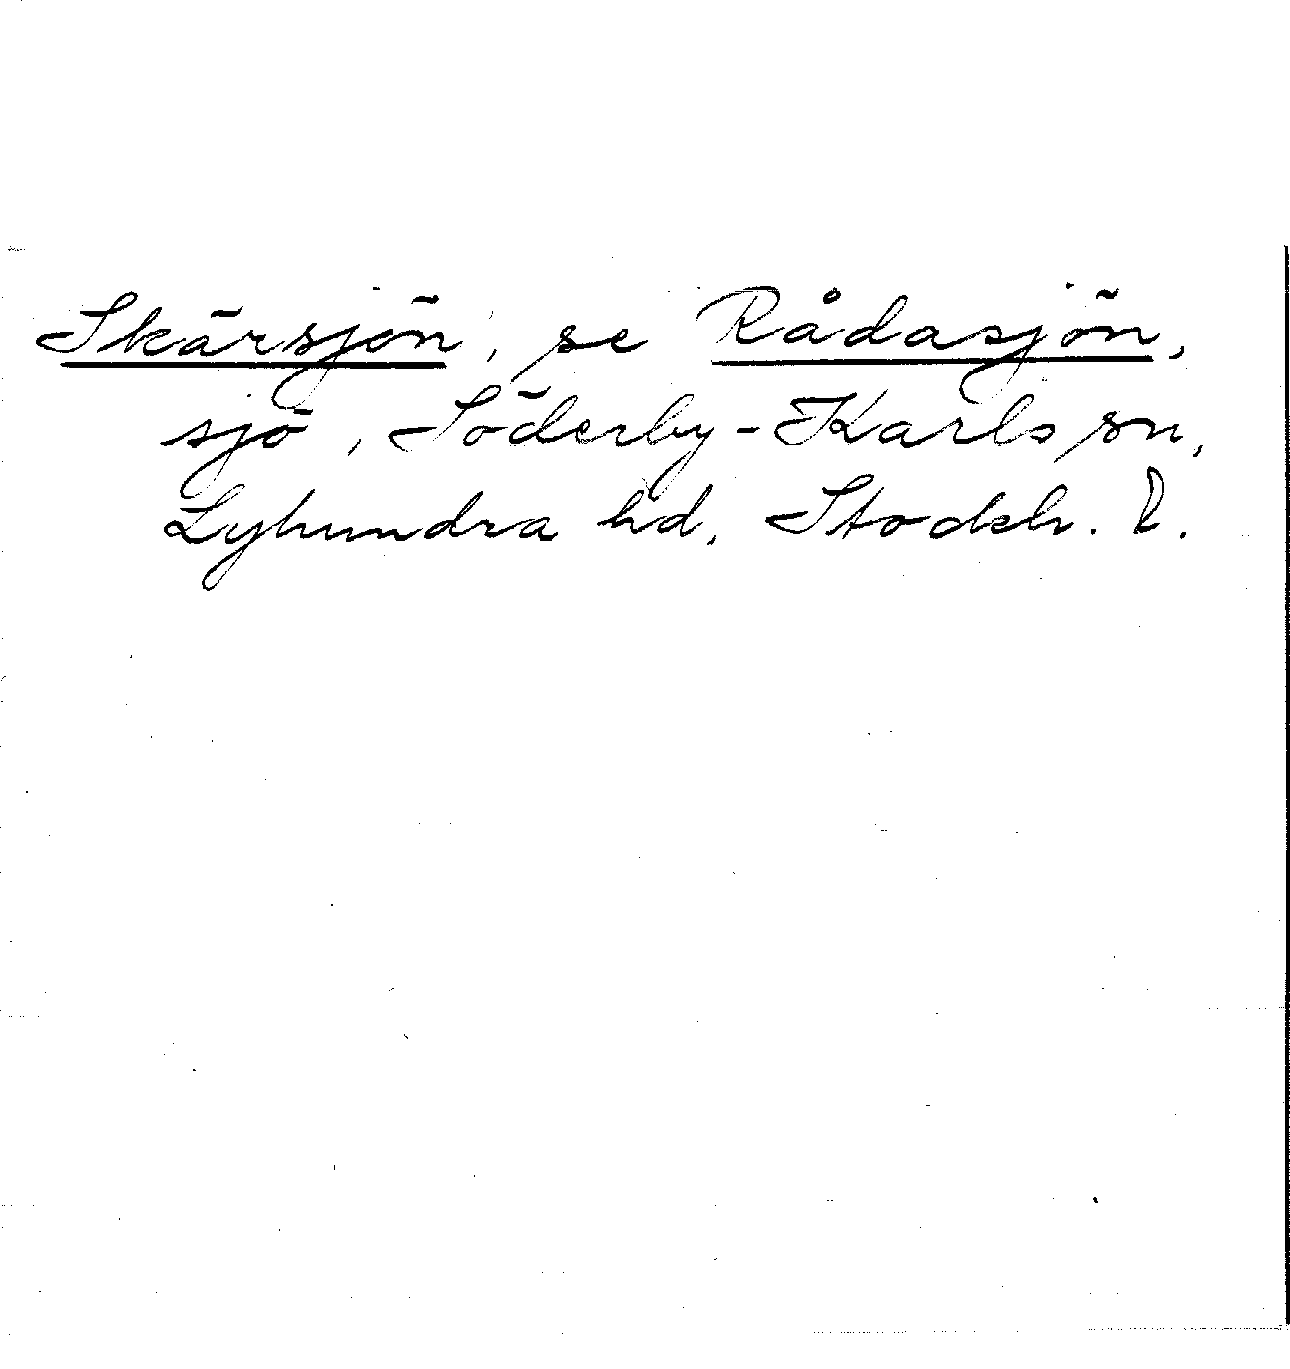 Skärsjön, se Rådasjön,
sjö, Söderby-Karls sn,
Lyhundra hd, Stockh. l.